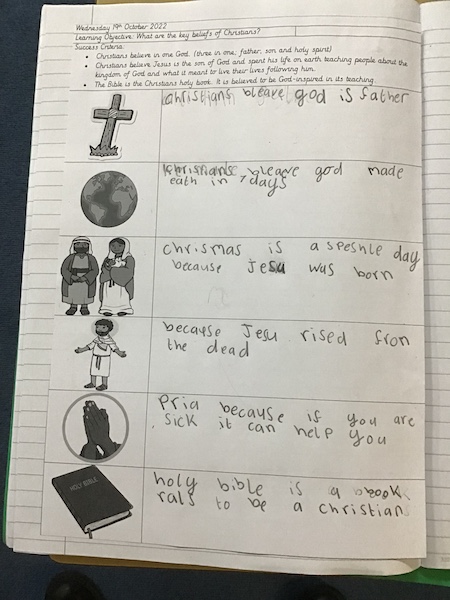 Wednesday 19th October 2022
Learning Objective: What are the key beliefs of Christians?
Success Criteria:
• Christians believe in one God. (three in one; father, son and holy spirit)
• Christians believe Jesus is the son of God and spent his life on earth teaching people about the
kingdom of God and what it meant to live their lives following him.
• The Bible is the Christians holy book. It is believed to be God-inspired in its teaching.
christians bleave god is father
bleave god made
eath in 7 days
chrismas is a speshle day
because Jesu was born
because Jesu rised fron
the dead
Pria because if you are
sick it can help you
HOLY BIBLE
holy bible is a book
rals to be a christian